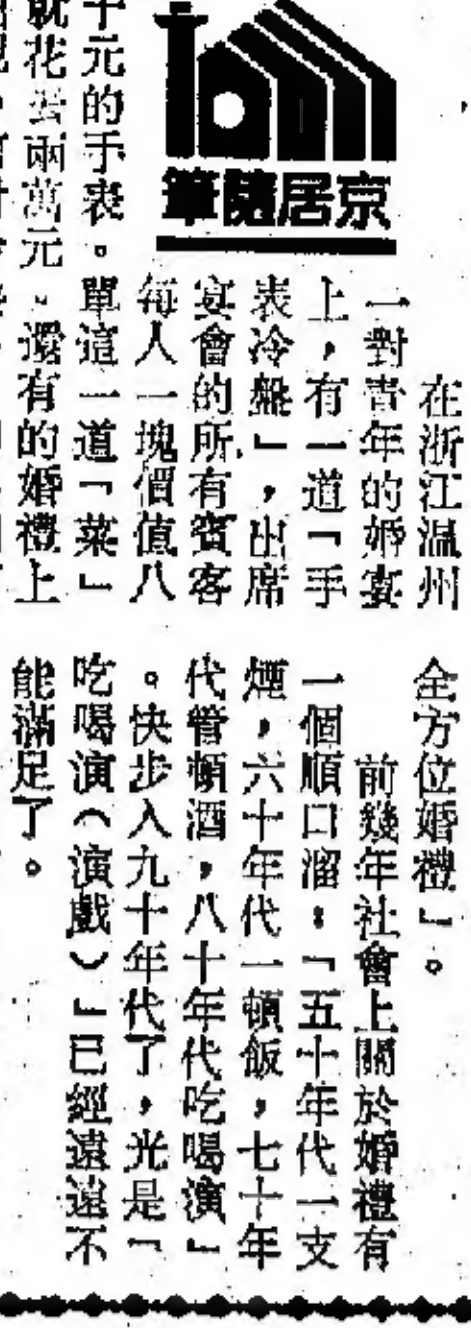 京居隨筆
在浙江温州
一對青年的婚宴
上，有一道「手
表冷盤」，出席
宴會的所有賓客
每人一塊價值八
千元的手表。單這一道「菜」
就花去兩萬元。還有的婚禮上
全方位婚禮」。
前幾年社會上關於婚禮有
一個順口溜：「五十年代一支
煙，六十年代一頓飯，七十年
代管頓酒，八十年代吃喝演」
。快步入九十年代了，光是「
吃喝演（演戲）」已經遠遠不
能滿足了。